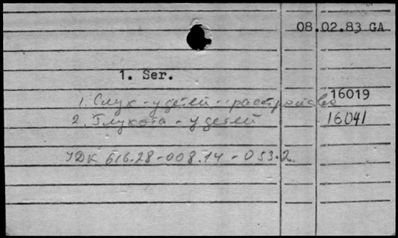 08.02.83 GA
1. Ser.
1. Слух - у детей - расстройства 16019
2. Глухота - у детей 16041
УДК 616.28-008.14-053.2